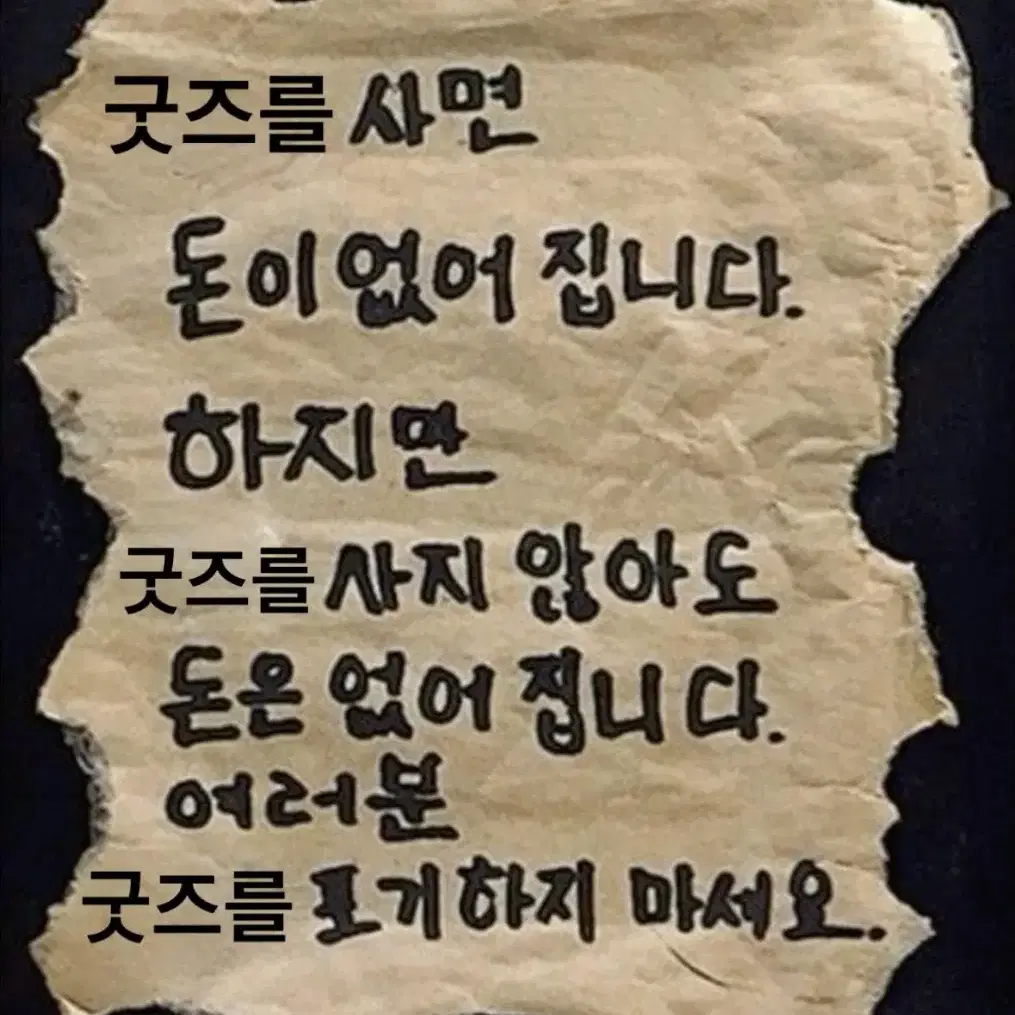 굿즈를 사면
돈이 없어 집니다.
하지만
굿즈를 사지 않아도
돈은 없어 집니다.
여러분
굿즈를 포기하지 마세요.